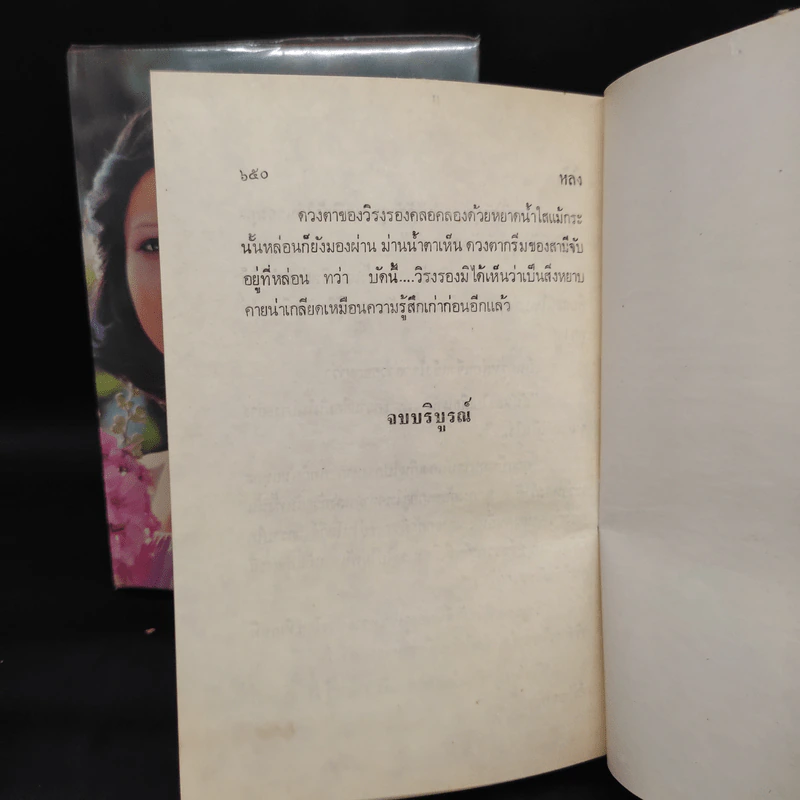 ๖๕๐ หลง
ดวงตาของวิรงรองคลอคลองด้วยหยาดน้ำใสแม้กระ
นั้นหล่อนก็ยังมองผ่าน ม่านน้ำตาเห็น ดวงตากริ่มของสามีจับ
อยู่ที่หล่อน ทว่า บัดนี้....วิรงรองมิได้เห็นว่าเป็นสิ่งหยาบ
คายน่าเกลียดเหมือนความรู้สึกเก่าก่อนอีกแล้ว
จบบริบูรณ์